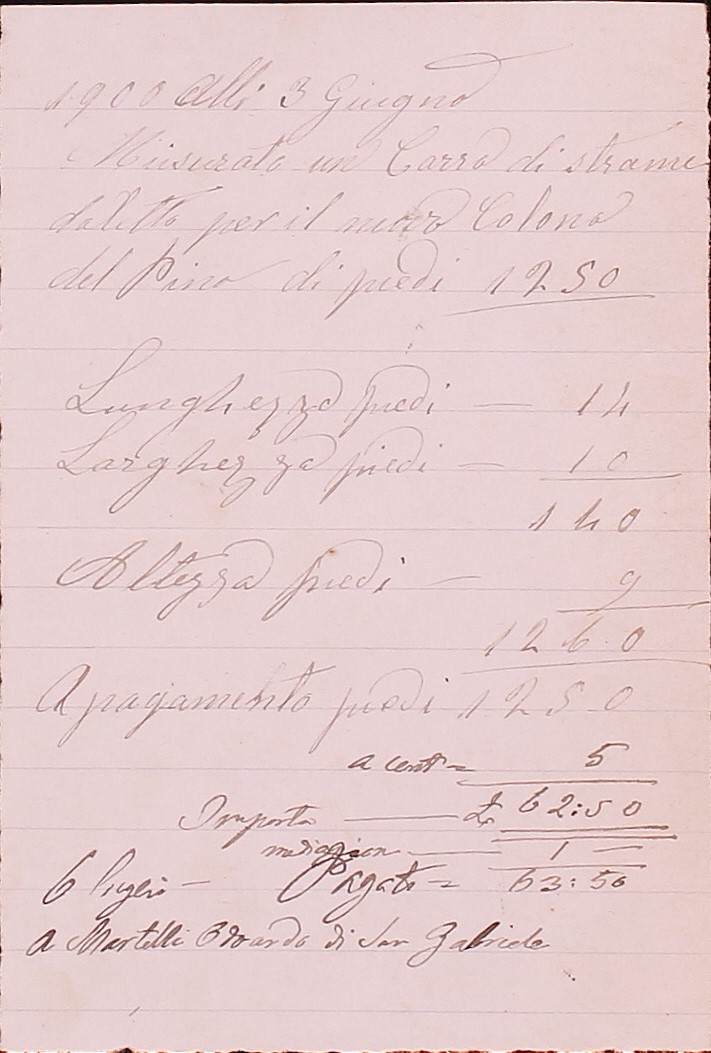 1900 Alli 3 Giugno
Misurato un Carro di strame
daletto per il nuovo Colono
del Pino di piedi 1250
Lunghezza piedi — 14
Larghezza piedi — 10
140
Altezza piedi — 9
1260
A pagamento piedi 1250
a cent = 5
Importa — £ 62:50
— 1 —
6 Luglio — Pagato = 63:50
a Martelli Edoardo di San Gabriele